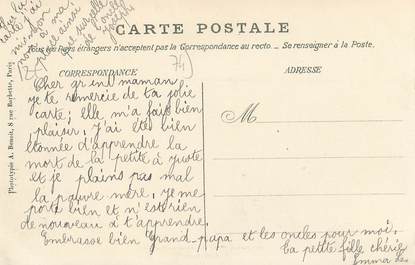 CARTE POSTALE
Tous les Pays étrangers n'acceptent pas la Correspondance au recto. — Se renseigner à la Poste.
CORRESPONDANCE
ADRESSE
M
Phototypie A. Benoit, 8 rue Barbette, Paris
Cher grand maman,
je te remercie de ta jolie
carte; elle m'a fait bien
plaisir; j'ai été bien
étonnée d'apprendre la
mort de la petite à
et je plains pas mal
la pauvre mère, je me
porte bien et n'est rien
de nouveau à t'apprendre.
Embrasse bien Grand-papa et les oncles pour moi.
ta petite fille chérie
Emma